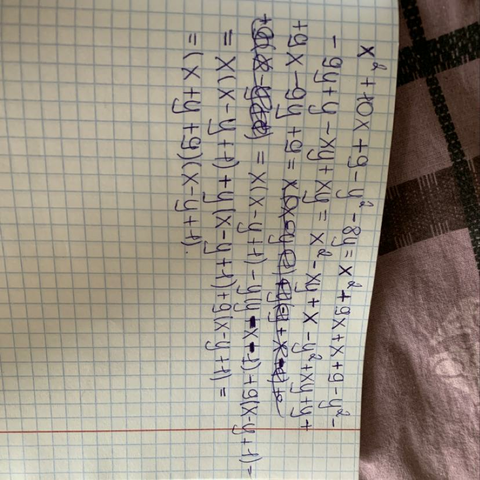 x² + 10x + 9 - y² - 8y = x² + 9x + x + 9 - y² -
- 9y + y - xy + xy = x² - xy + x - y² + xy + y +
+ 9x - 9y + 9 =
= x(x - y + 1) - y(y - x - 1) + 9(x - y + 1) =
= x(x - y + 1) + y(x - y + 1) + 9(x - y + 1) =
= (x + y + 9)(x - y + 1).